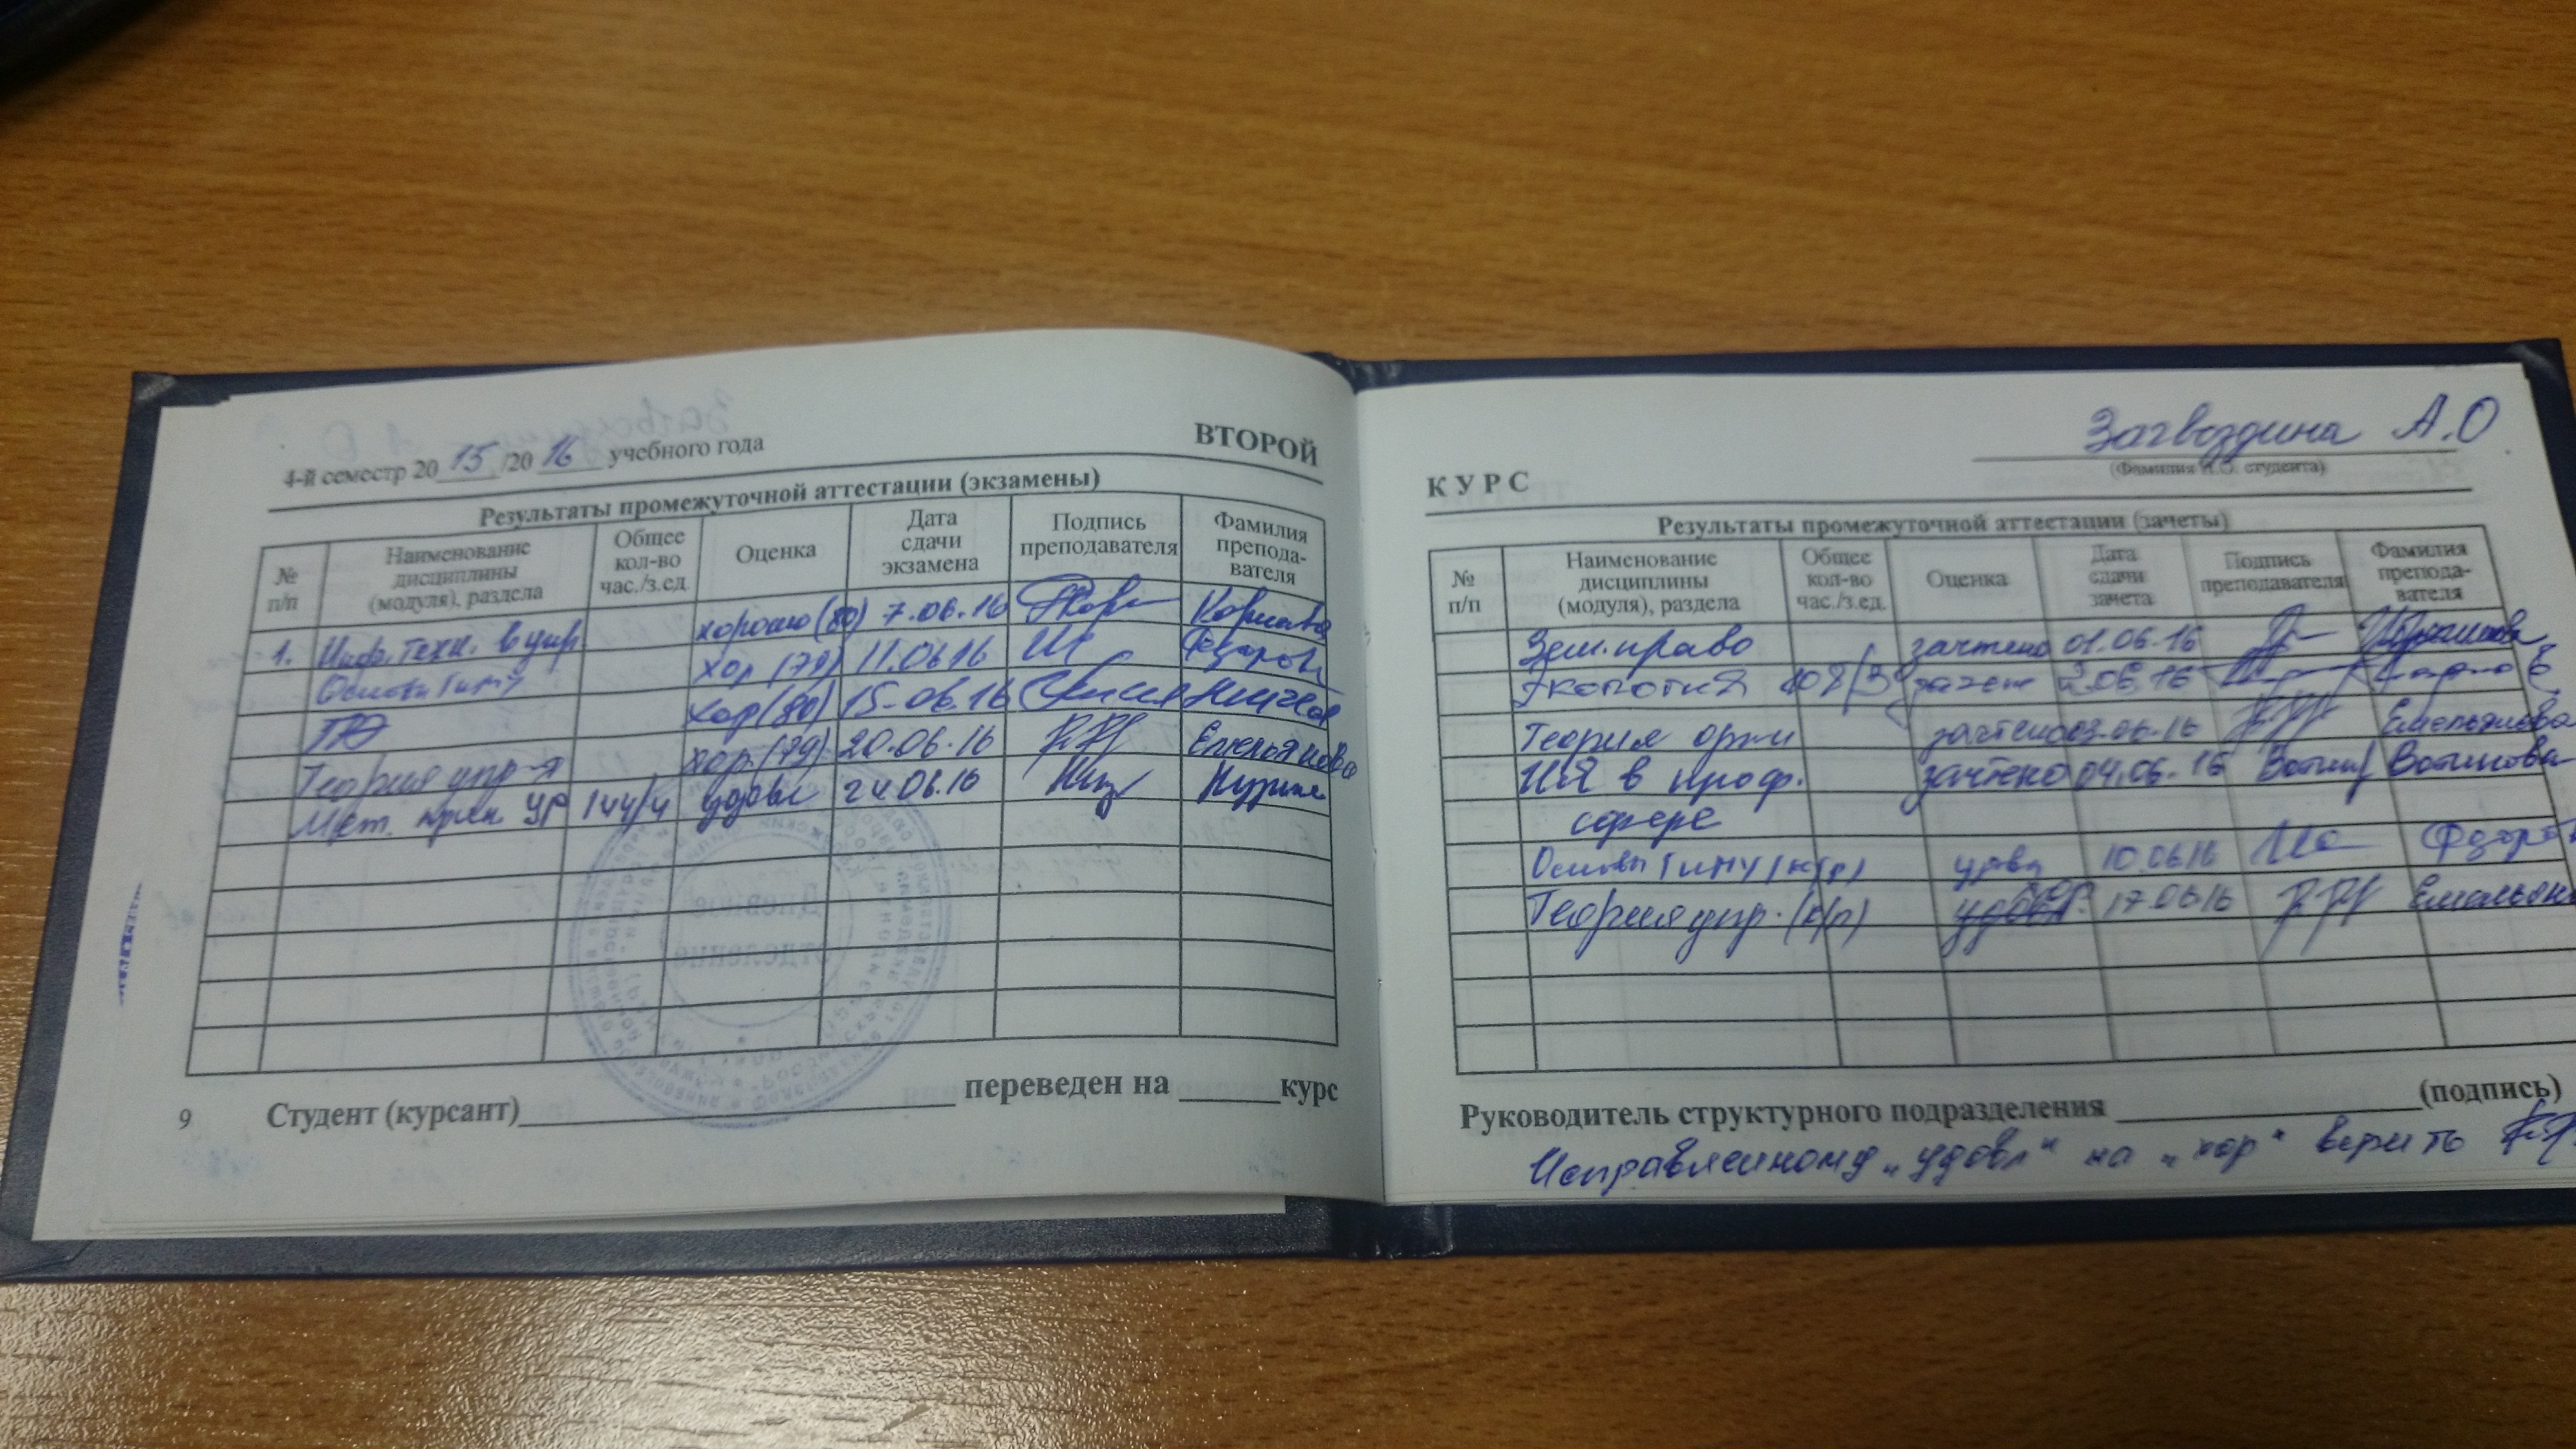 4-й семестр 2015/2016 учебного года
ВТОРОЙ
Результаты промежуточной аттестации (экзамены)
№ п/п Наименование дисциплины (модуля), раздела Общее кол-во час./з.ед. Оценка Дата сдачи экзамена Подпись преподавателя Фамилия препода-вателя
1. Инф. техн. в упр хорошо (80) 7.06.16
Основы ГиМУ хор (79) 11.0616 Федоров
хор (80) 15.06.16
Теория упр-я хор. (79) 20.06.16 Емельянова
Мет. прин УР 144/4 удовл 24.06.16
9 Студент (курсант) переведен на курс
Загвоздина А.О
(Фамилия И.О. студента)
КУРС
Результаты промежуточной аттестации (зачеты)
№ п/п Наименование дисциплины (модуля), раздела Общее кол-во час./з.ед. Оценка Дата сдачи зачета Подпись преподавателя Фамилия препода-вателя
Зем. право зачтено 01.06.16
Экология 108/3 зачтено 2.06.16
Теория орг-и зачтено 03.06.16 Емельянова
ИЯ в проф. зачтено 04.06.16 Вотинова
сфере
Основы ГиМУ (к/р) удовл 10.0616 Федоров
Теория упр. (к/п) удовл хор. 17.0616
Руководитель структурного подразделения (подпись)
Исправленному „удовл" на „хор" верить